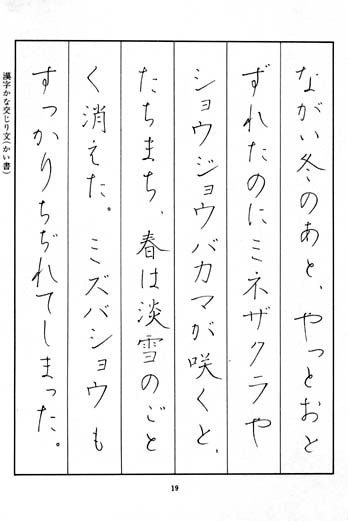 ながい冬のあと、やっとおと
ずれたのにミネザクラや
ショウジョウバカマが咲くと、
たちまち、春は淡雪のごと
く消えた。ミズバショウも
すっかりちぢれてしまった。
漢字かな交じり文(かい書)
19